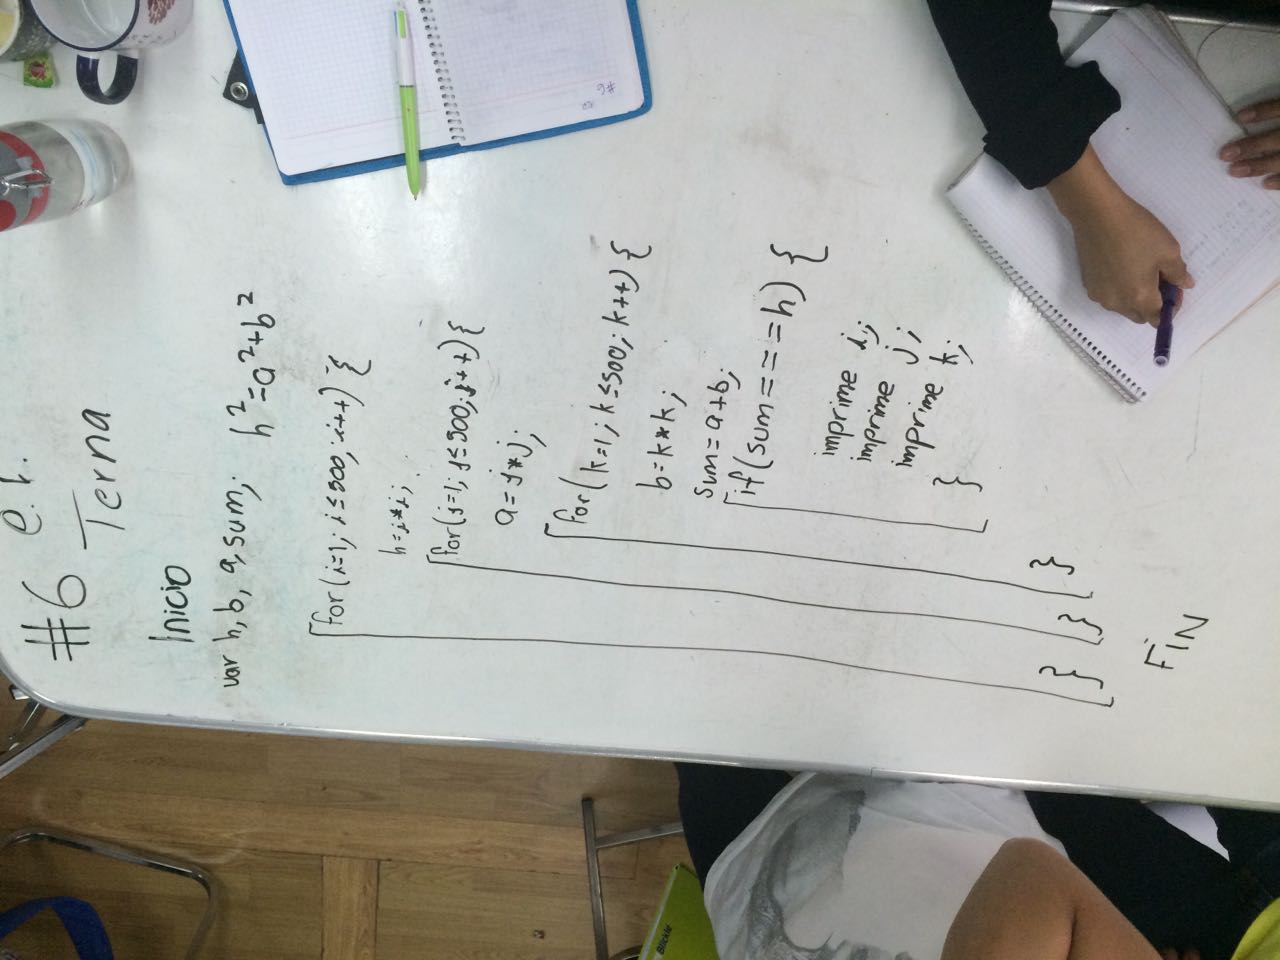 e.h.
#6 Terna
Inicio
var h, b, a, sum; h²=a²+b²
for(i=1; i≤500; i++) {
h=i*i;
for(j=1; j≤500; j++) {
a=j*j;
for(k=1; k≤500; k++) {
b=k*k;
sum=a+b;
if(sum====h) {
imprime i;
imprime j;
imprime k;
}
}
}
}
FiN
#6
Blickle